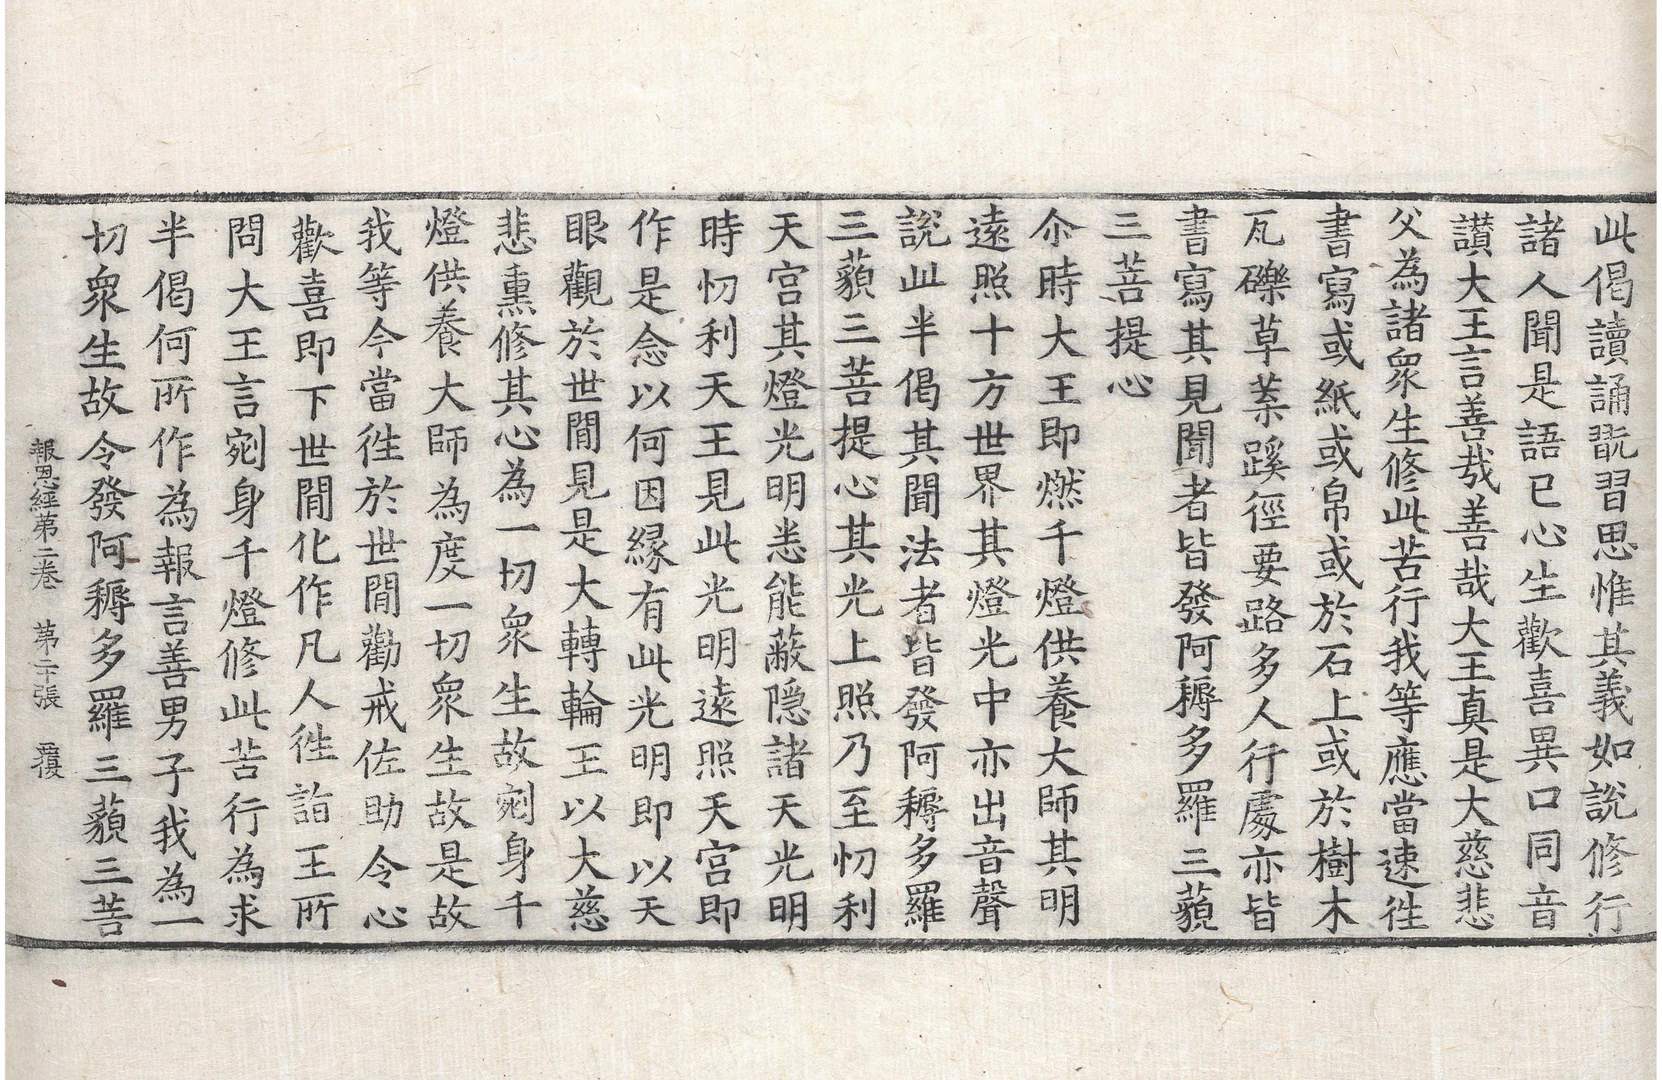 此偈讀誦翫習思惟其義如說修行
諸人聞是語已心生歡喜異口同音
讃大王言善哉善哉大王真是大慈悲
父為諸衆生修此苦行我等應當速徃
書寫或紙或帛或於石上或於樹木
瓦礫草葉蹊徑要路多人行處亦皆
書寫其見聞者皆發阿耨多羅三藐
三菩提心
尒時大王即燃千燈供養大師其明
遠照十方世界其燈光中亦出音聲
說此半偈其聞法者皆發阿耨多羅
三藐三菩提心其光上照乃至忉利
天宮其燈光明悉能蔽隱諸天光明
時忉利天王見此光明遠照天宮即
作是念以何因縁有此光明即以天
眼觀於世閒見是大轉輪王以大慈
悲熏修其心為一切衆生故剜身千
燈供養大師為度一切衆生故是故
我等今當徃於世閒勸戒佐助令心
歡喜即下世閒化作凡人徃詣王所
問大王言剜身千燈修此苦行為求
半偈何所作為報言善男子我為一
切衆生故令發阿耨多羅三藐三菩
報恩經第二卷 第二十張 覆